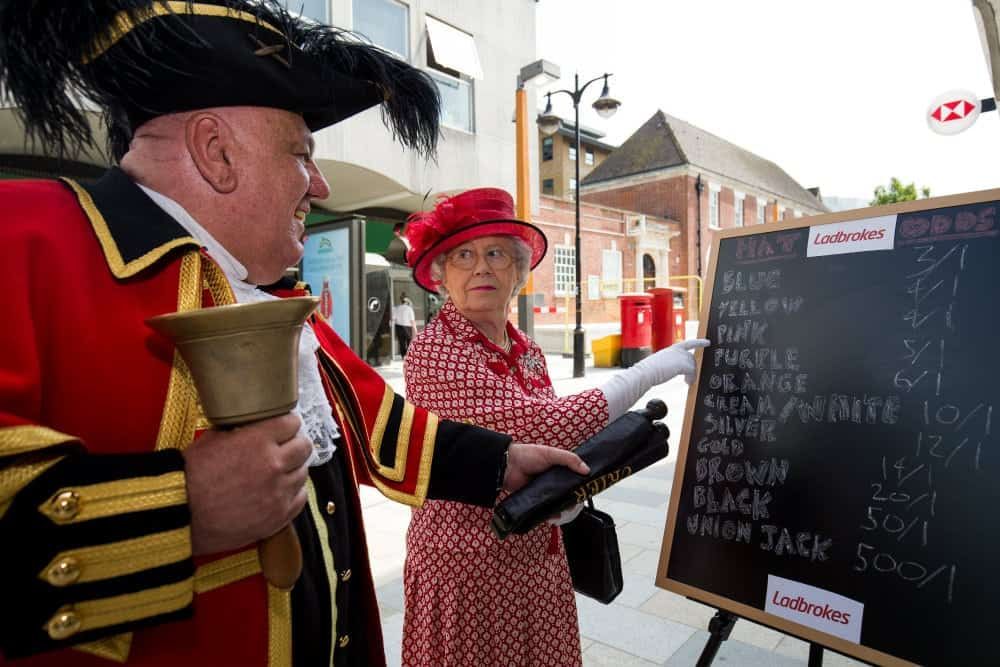 HAT Ladbrokes ODDS
BLUE 3/1
YELLOW 4/1
PINK
PURPLE 5/1
ORANGE 6/1
CREAM/WHITE 10/1
SILVER 12/1
GOLD 14/1
BROWN 20/1
BLACK 50/1
UNION JACK 500/1
Ladbrokes
CRIER